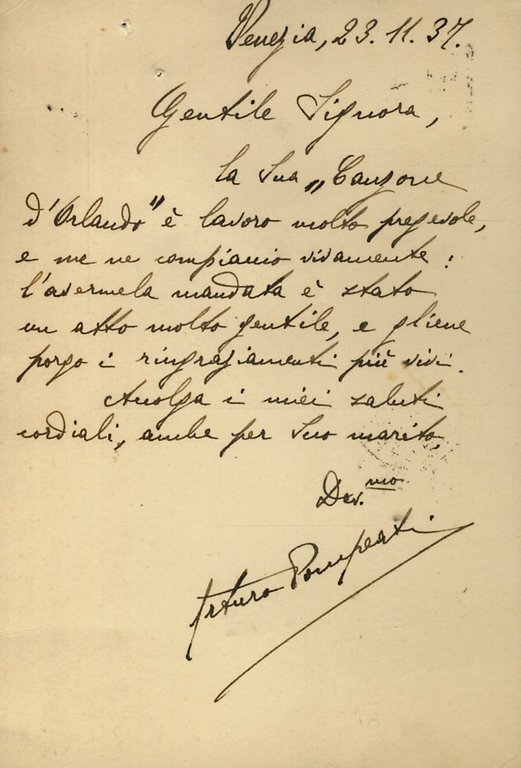 Venezia, 23.11.37.
Gentile Signora,
la Sua „Canzone
d'Orlando" è lavoro molto pregevole,
e me ne compiaccio vivamente:
l'avermela mandata è stato
un atto molto gentile, e gliene
porgo i ringraziamenti più vivi.
Accolga i miei saluti
cordiali, anche per Suo marito,
Dev.mo
Arturo Pompeati